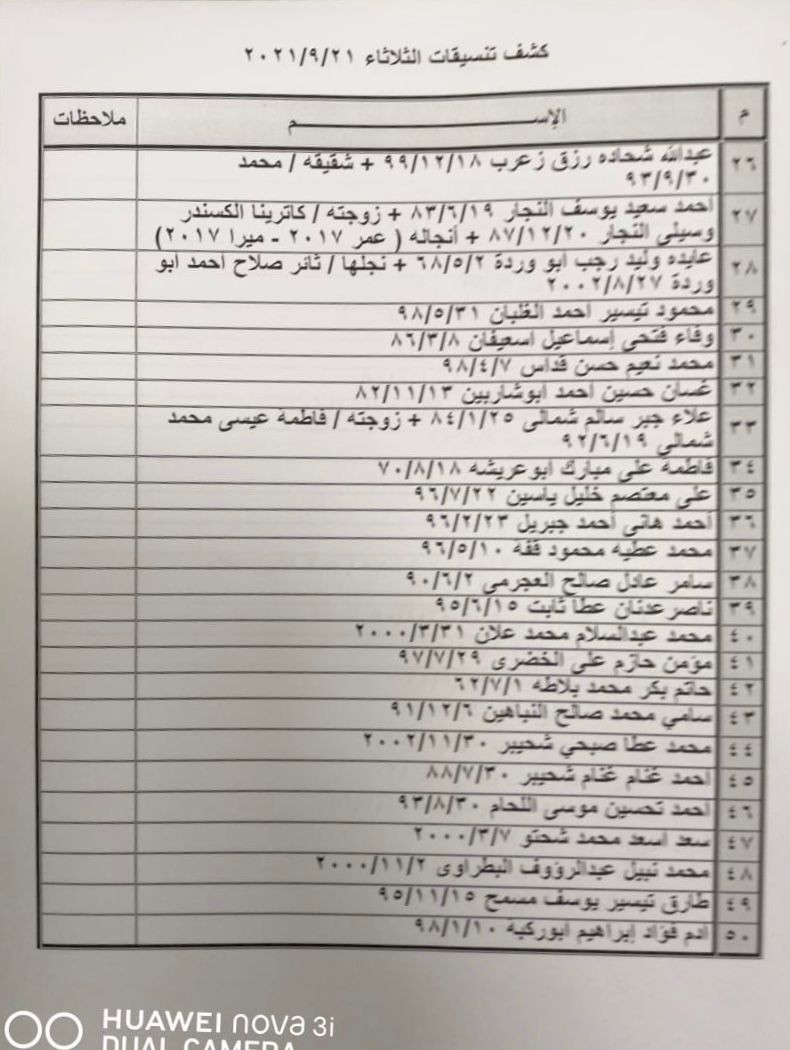 كشف تنسيقات الثلاثاء ٢٠٢١/٩/٢١
م الإســـــــــــــم ملاحظات
٢٦ عبدالله شحاده رزق زعرب ٩٩/١٢/١٨ + شقيقه / محمد
٩٣/٩/٣٠
٢٧ احمد سعيد يوسف النجار ٨٣/٦/١٩ + زوجته / كاترينا الكسندر
وسيلى النجار ٨٧/١٢/٢٠ + أنجاله ( عمر ٢٠١٧ - ميرا ٢٠١٧)
٢٨ عايده وليد رجب ابو وردة ٦٨/٥/٢ + نجلها / ثائر صلاح احمد ابو
وردة ٢٠٠٢/٨/٢٧
٢٩ محمود تيسير احمد الغلبان ٩٨/٥/٣١
٣٠ وفاء فتحى إسماعيل اسعيفان ٨٦/٣/٨
٣١ محمد نعيم حسن قداس ٩٨/٤/٧
٣٢ غسان حسين احمد ابوشاربين ٨٢/١١/١٣
٣٣ علاء جبر سالم شمالى ٨٤/١/٢٥ + زوجته / فاطمة عيسى محمد
شمالي ٩٢/٦/١٩
٣٤ فاطمة على مبارك ابوعريشه ٧٠/٨/١٨
٣٥ على معتصم خليل ياسين ٩٦/٧/٢٢
٣٦ أحمد هانى أحمد جبريل ٩٦/٢/٢٣
٣٧ محمد عطيه محمود قفة ٩٦/٥/١٠
٣٨ سامر عادل صالح العجرمي ٩٠/٦/٢
٣٩ ناصر عدنان عطا ثابت ٩٥/٦/١٥
٤٠ محمد عبدالسلام محمد علان ٢٠٠٠/٣/٣١
٤١ مؤمن حازم على الخضرى ٩٧/٧/٢٩
٤٢ حاتم بكر محمد بلاطه ٦٢/٧/١
٤٣ سامي محمد صالح النباهين ٩١/١٢/٦
٤٤ محمد عطا صبحي شحيبر ٢٠٠٢/١١/٣٠
٤٥ احمد غنام غنام شحيبر ٨٨/٧/٣٠
٤٦ احمد تحسين موسى اللحام ٩٣/٨/٣٠
٤٧ سعد اسعد محمد شحتو ٢٠٠٠/٣/٧
٤٨ محمد نبيل عبدالرؤوف البطراوى ٢٠٠٠/١١/٢
٤٩ طارق تيسير يوسف مسمح ٩٥/١١/١٥
٥٠ ادم فؤاد إبراهيم ابوركبة ٩٨/١/١٠
HUAWEI nova 3i
DUAL CAMERA